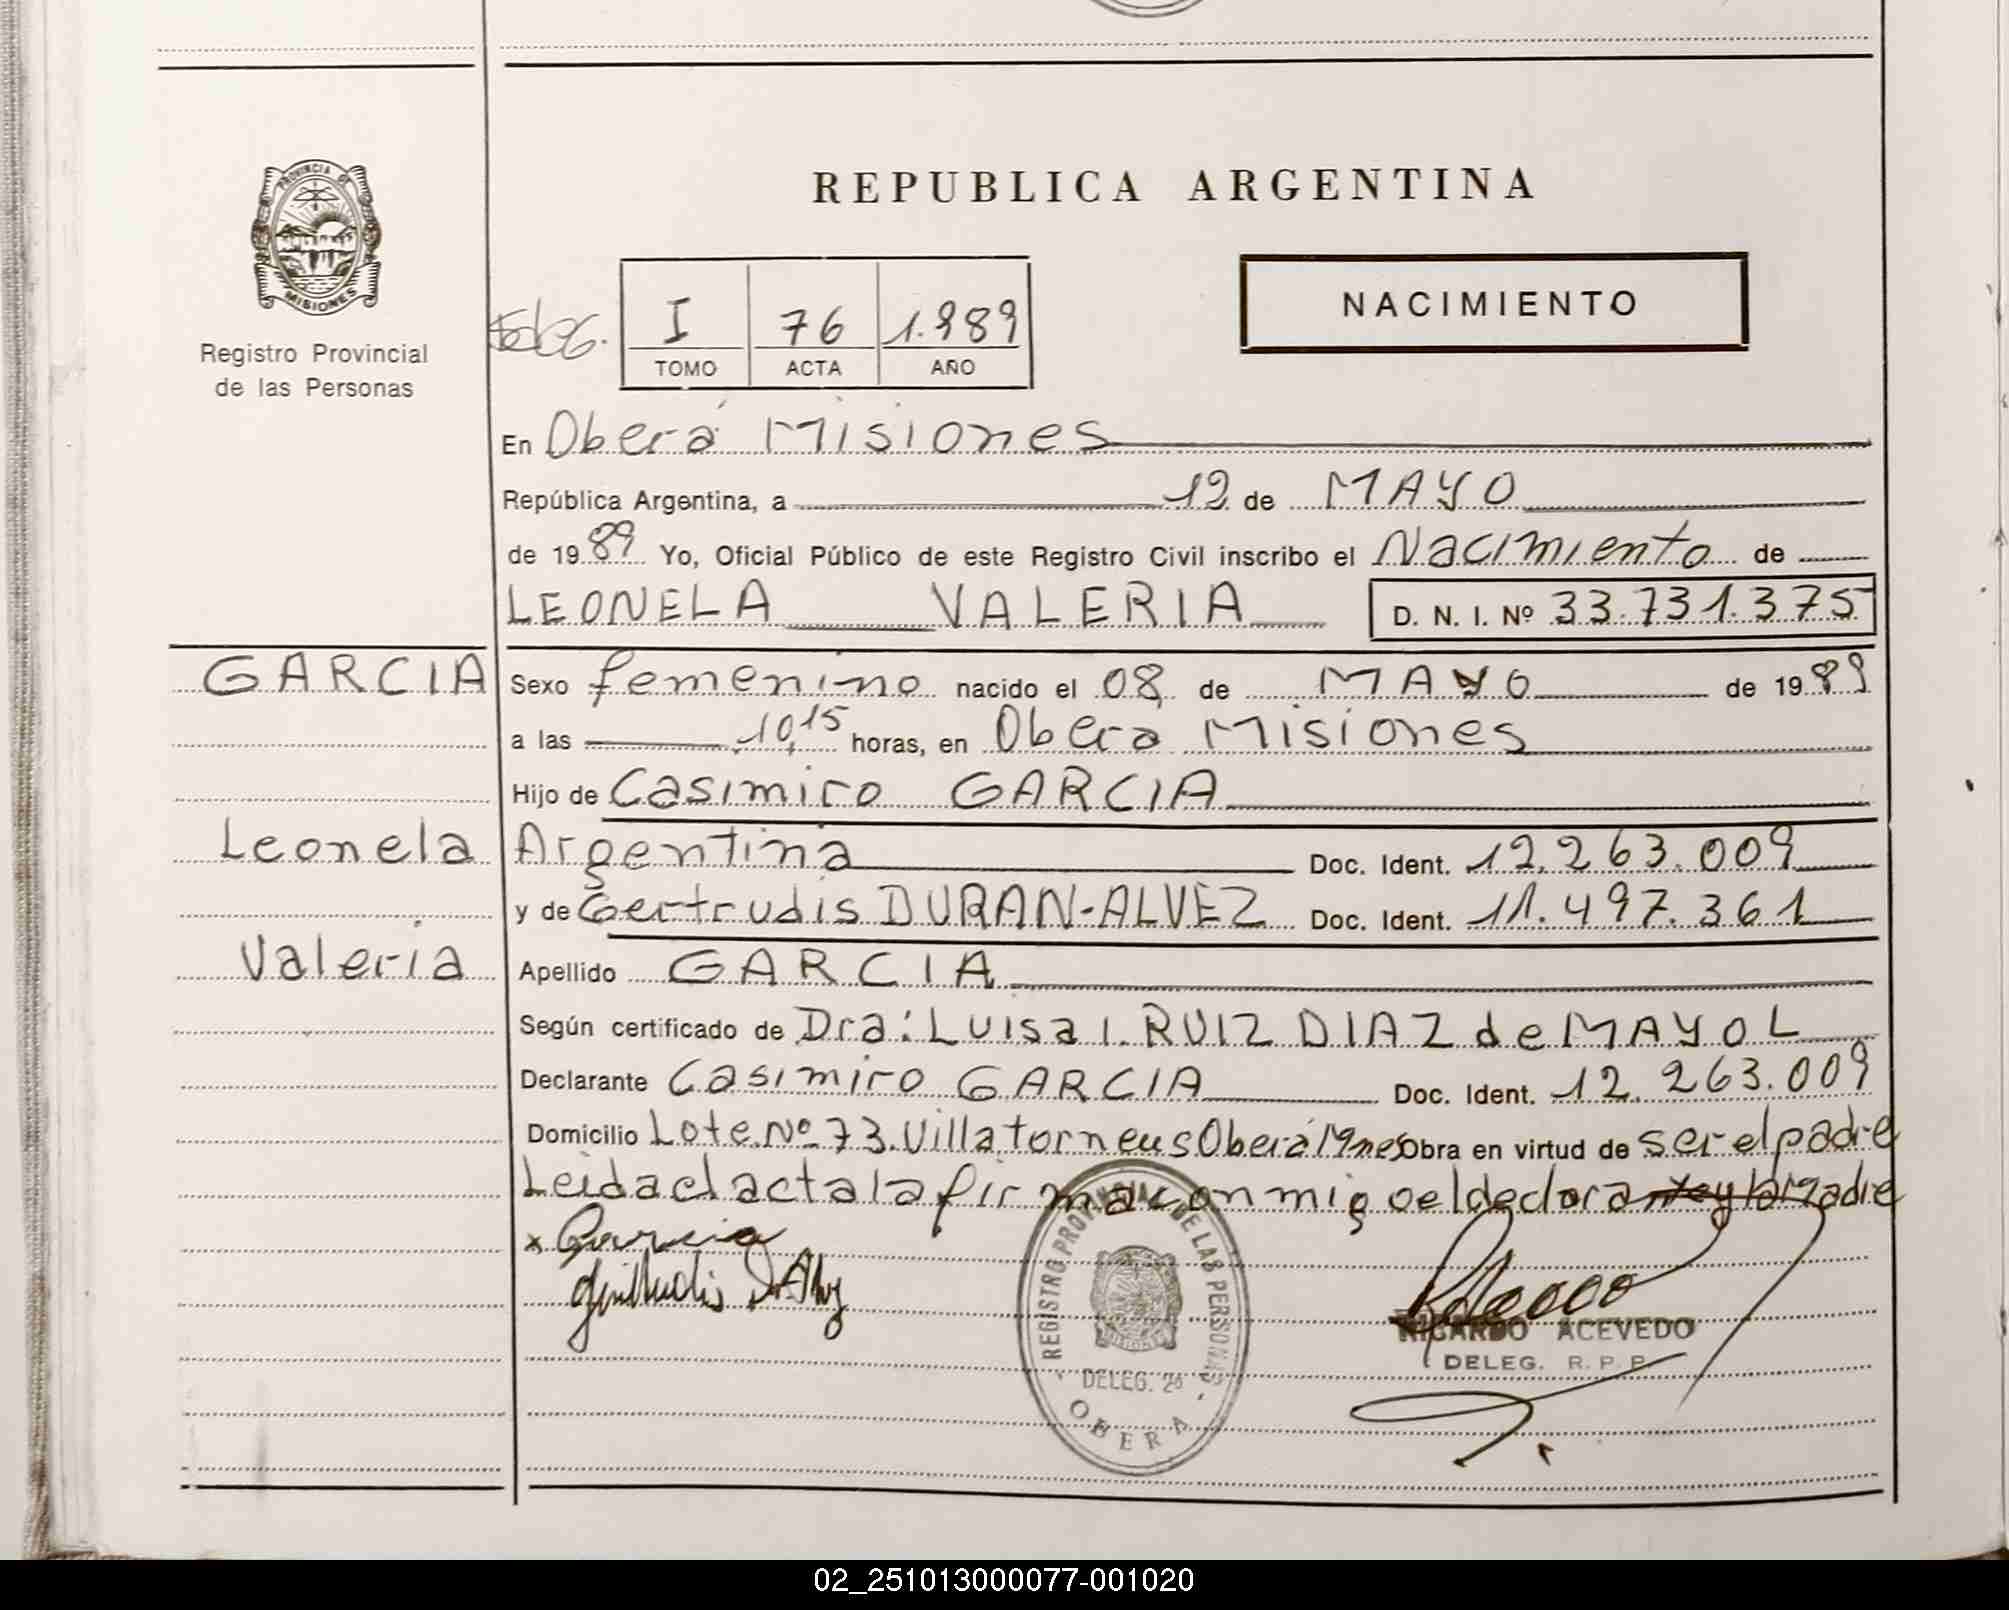 PROVINCIA DE
MISIONES
Registro Provincial
de las Personas
REPUBLICA ARGENTINA
I 76 1.989
TOMO ACTA AÑO
NACIMIENTO
En Oberá Misiones
República Argentina, a 12 de MAYO
de 1989 Yo, Oficial Público de este Registro Civil inscribo el Nacimiento de
LEONELA VALERIA D. N. I. Nº 33.731.375
GARCIA
Sexo femenino nacido el 08 de MAYO de 1989
a las 10,15 horas, en Obera Misiones
Hijo de Casimiro GARCIA
Leonela
Argentina Doc. Ident. 12.263.009
y de Gertrudis DURAN-ALVEZ Doc. Ident. 11.497.361
Valeria
Apellido GARCIA
Según certificado de Dra: Luisa I. RUIZ DIAZ de MAYOL
Declarante Casimiro GARCIA Doc. Ident. 12.263.009
Domicilio Lote Nº 73. Villa torneus Oberá Mnes Obra en virtud de ser el padre
Leida el acta la firma conmigo el declarante y la madre
x Garcia
REGISTRO PROVINCIAL DE LAS PERSONAS
DELEG. 2ª
OBERA
RICARDO ACEVEDO
DELEG. R. P. P.
02_251013000077-001020